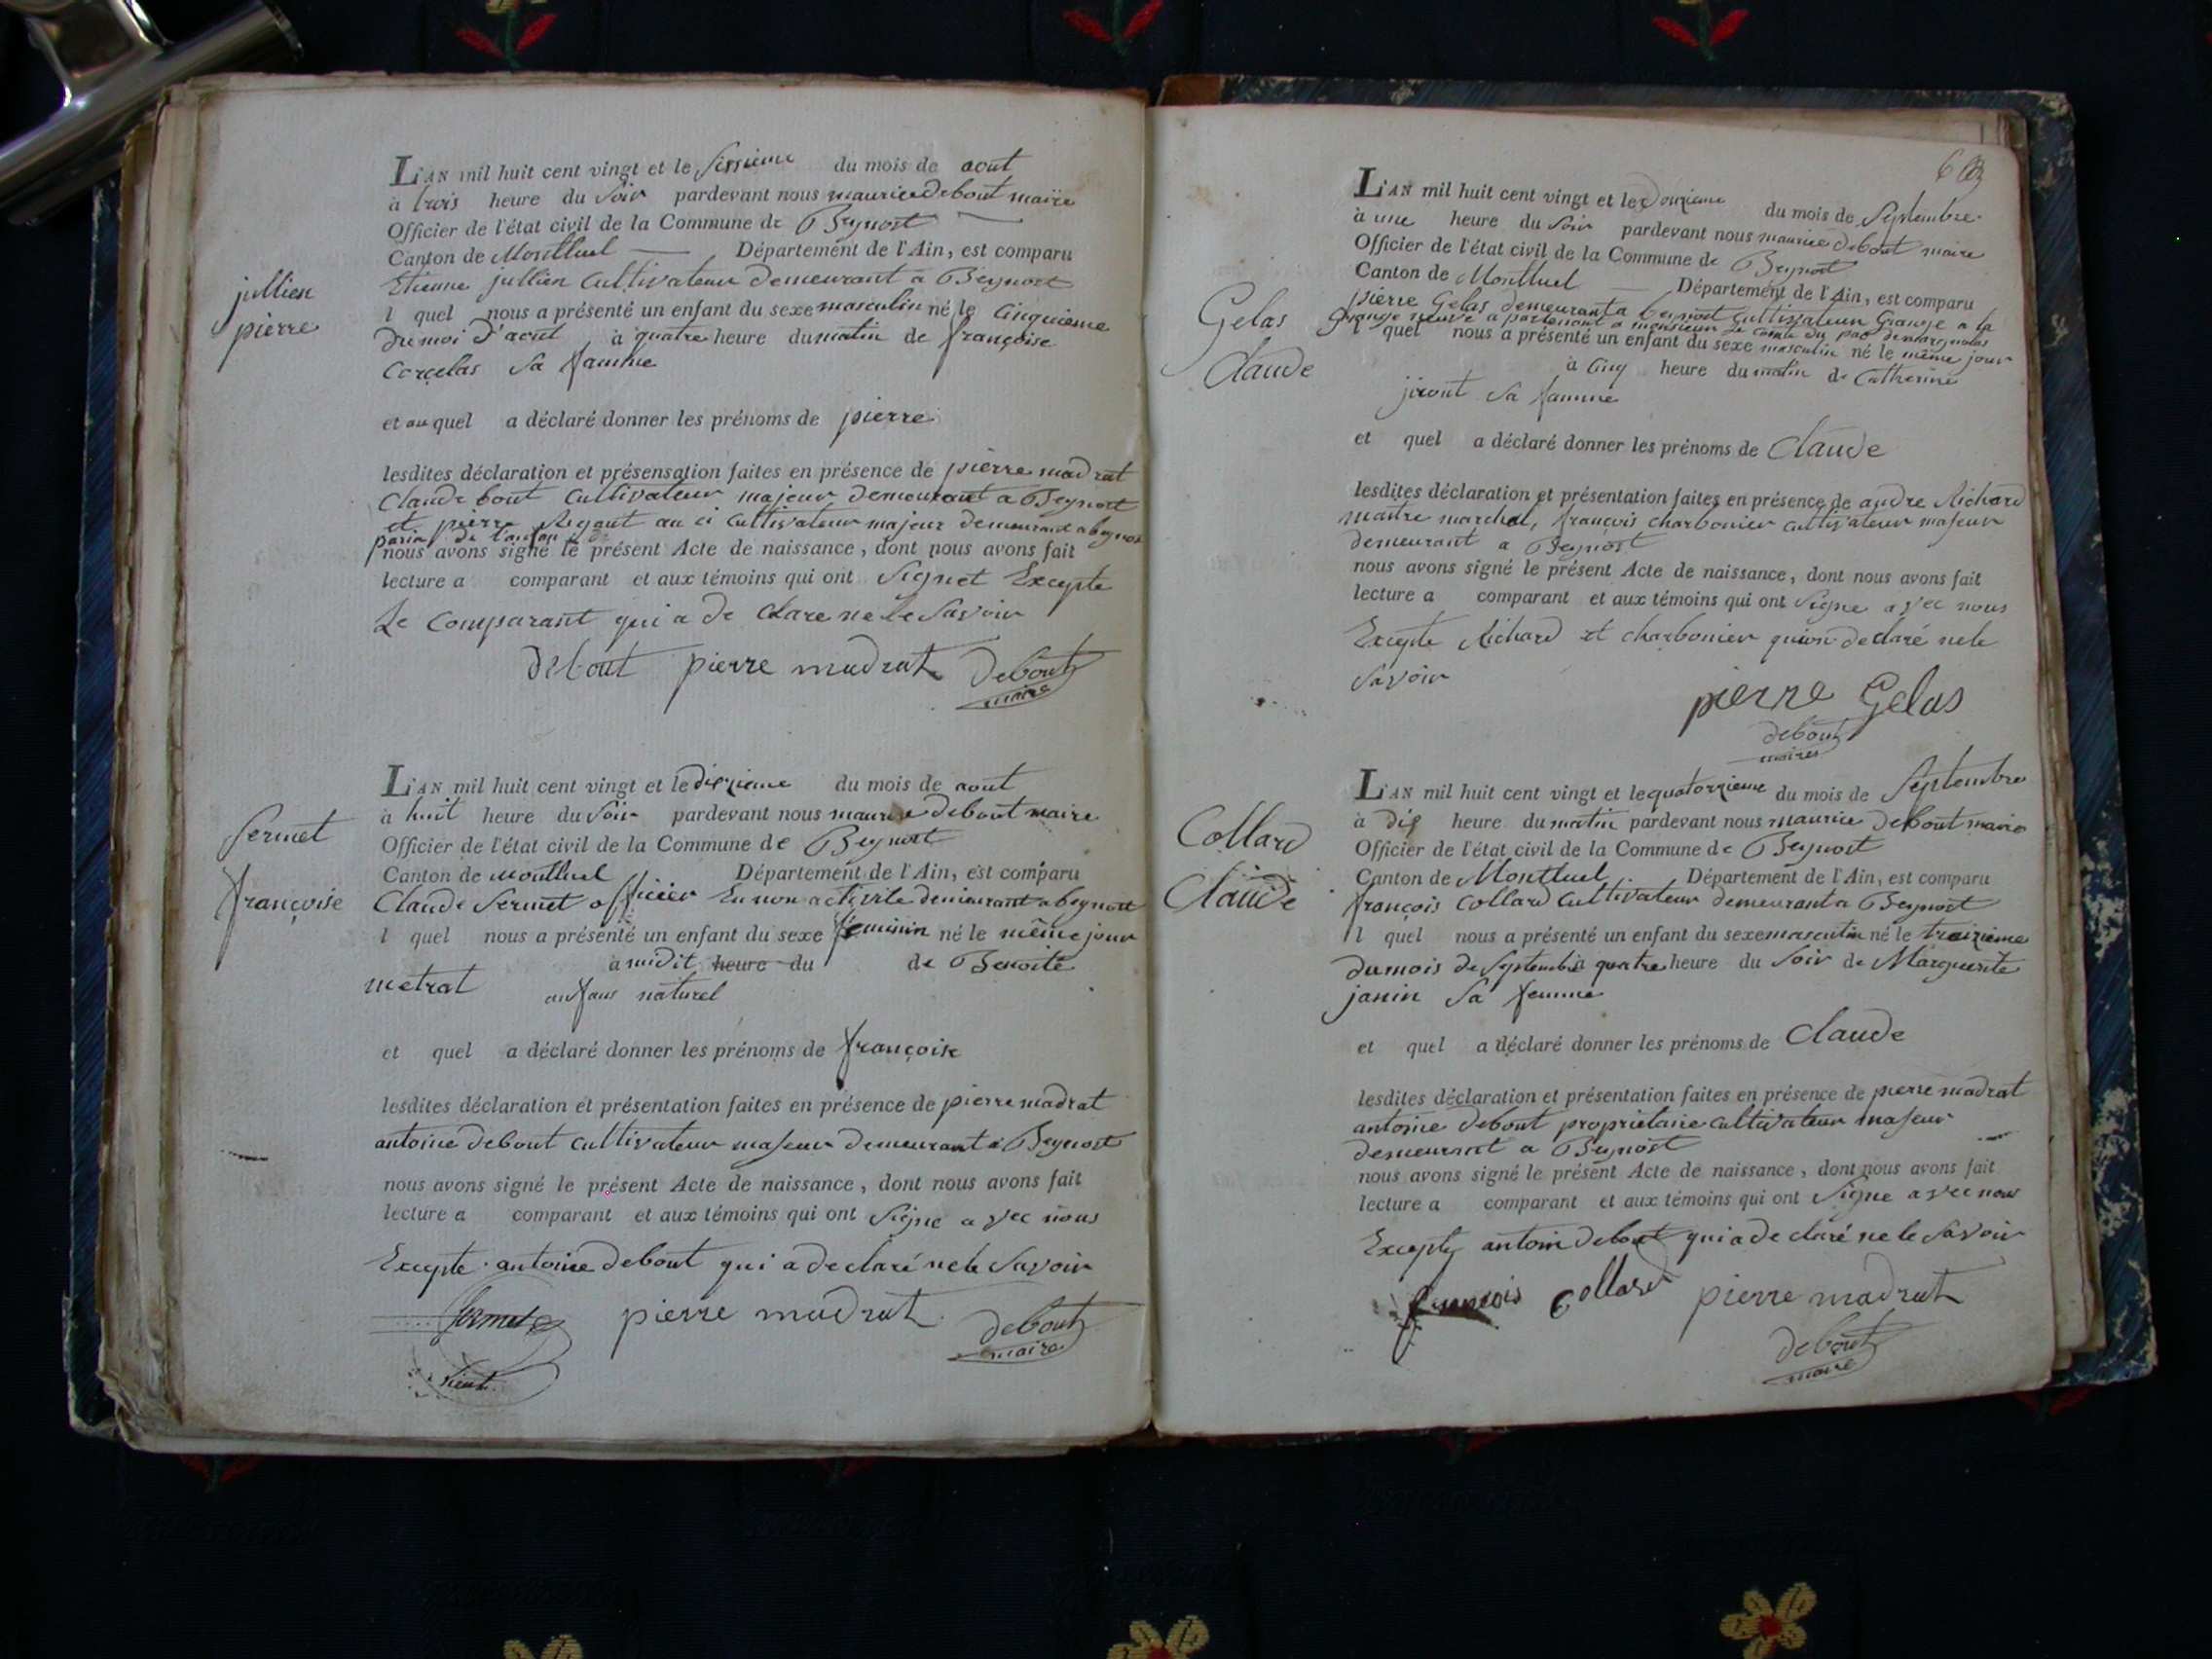 jullien
pierre
L'AN mil huit cent vingt et le sixsieme du mois de aout
à trois heure du soir pardevant nous maurice debout maire
Officier de l'état civil de la Commune de Beynost
Canton de Montluel Département de l'Ain, est comparu
Etienne jullien cultivateur demeurant a Beynost
l quel nous a présenté un enfant du sexe masculin né le cinquieme
du moi d'aout à quatre heure du matin de françoise
Carcelas sa famme
et au quel a déclaré donner les prénoms de pierre
lesdites déclaration et présensation faites en présence de pierre madrat
Claude bout cultivateur majeur demeurant a Beynost
et pierre au ci cultivateur majeur demeurant a beynost
nous avons signé le présent Acte de naissance, dont nous avons fait
lecture a comparant et aux témoins qui ont signet Excepte
Le comparant qui a de clare ne le savoir
debout pierre madrat Debout
maire
Sermet
françoise
L'AN mil huit cent vingt et le dixzieme du mois de aout
à huit heure du soir pardevant nous maurice debout maire
Officier de l'état civil de la Commune de Beynost
Canton de montluel Département de l'Ain, est comparu
Claude Sermet officier En non activite demeurant a beynost
l quel nous a présenté un enfant du sexe feminin né le même jour
à midit heure du de Benoite
metrat anfans naturel
et quel a déclaré donner les prénoms de françoise
lesdites déclaration et présentation faites en présence de pierre madrat
antoine debout cultivateur majeur demeurant a Beynost
nous avons signé le présent Acte de naissance, dont nous avons fait
lecture a comparant et aux témoins qui ont signe a vec nous
Excepte antoine debout qui a declaré ne le savoir
Sermet pierre madrat debout
maire
Lieut.
Gelas
Claude
L'AN mil huit cent vingt et le Douzieme du mois de Septembre
à une heure du soir pardevant nous maurice debout maire
Officier de l'état civil de la Commune de Beynost
Canton de Montluel Département de l'Ain, est comparu
pierre Gelas demeurant a beynost cultivateur Grange a la
Grange neuve a partenant a monsieur Le comte du
quel nous a présenté un enfant du sexe masculin né le même jour
à cinq heure du matin de Catherine
jiront sa famme
et quel a déclaré donner les prénoms de Claude
lesdites déclaration et présentation faites en présence de andre Richard
maitre marchal, françois charbonier cultivateur majeur
demeurant a Beynost
nous avons signé le présent Acte de naissance, dont nous avons fait
lecture a comparant et aux témoins qui ont signe a vec nous
Excepte Richard et charbonier qui on declaré ne le
savoir
pierre Gelas
debout
maire
Collard
Claude
L'AN mil huit cent vingt et le quatorzieme du mois de Septembre
à dix heure du matin pardevant nous maurice debout maire
Officier de l'état civil de la Commune de Beynost
Canton de Montluel Département de l'Ain, est comparu
françois Collard cultivateur demeurant a Beynost
l quel nous a présenté un enfant du sexe masculin né le traizieme
du mois de Septembre à quatre heure du soir de Marguerite
janin sa femme
et quel a déclaré donner les prénoms de Claude
lesdites déclaration et présentation faites en présence de pierre madrat
antoine debout proprietaire cultivateur majeur
demeurant a Beynost
nous avons signé le présent Acte de naissance, dont nous avons fait
lecture a comparant et aux témoins qui ont signe a vec nous
Excepte antoin debout qui a de claré ne le savoir
françois Collard pierre madrat
debout
maire